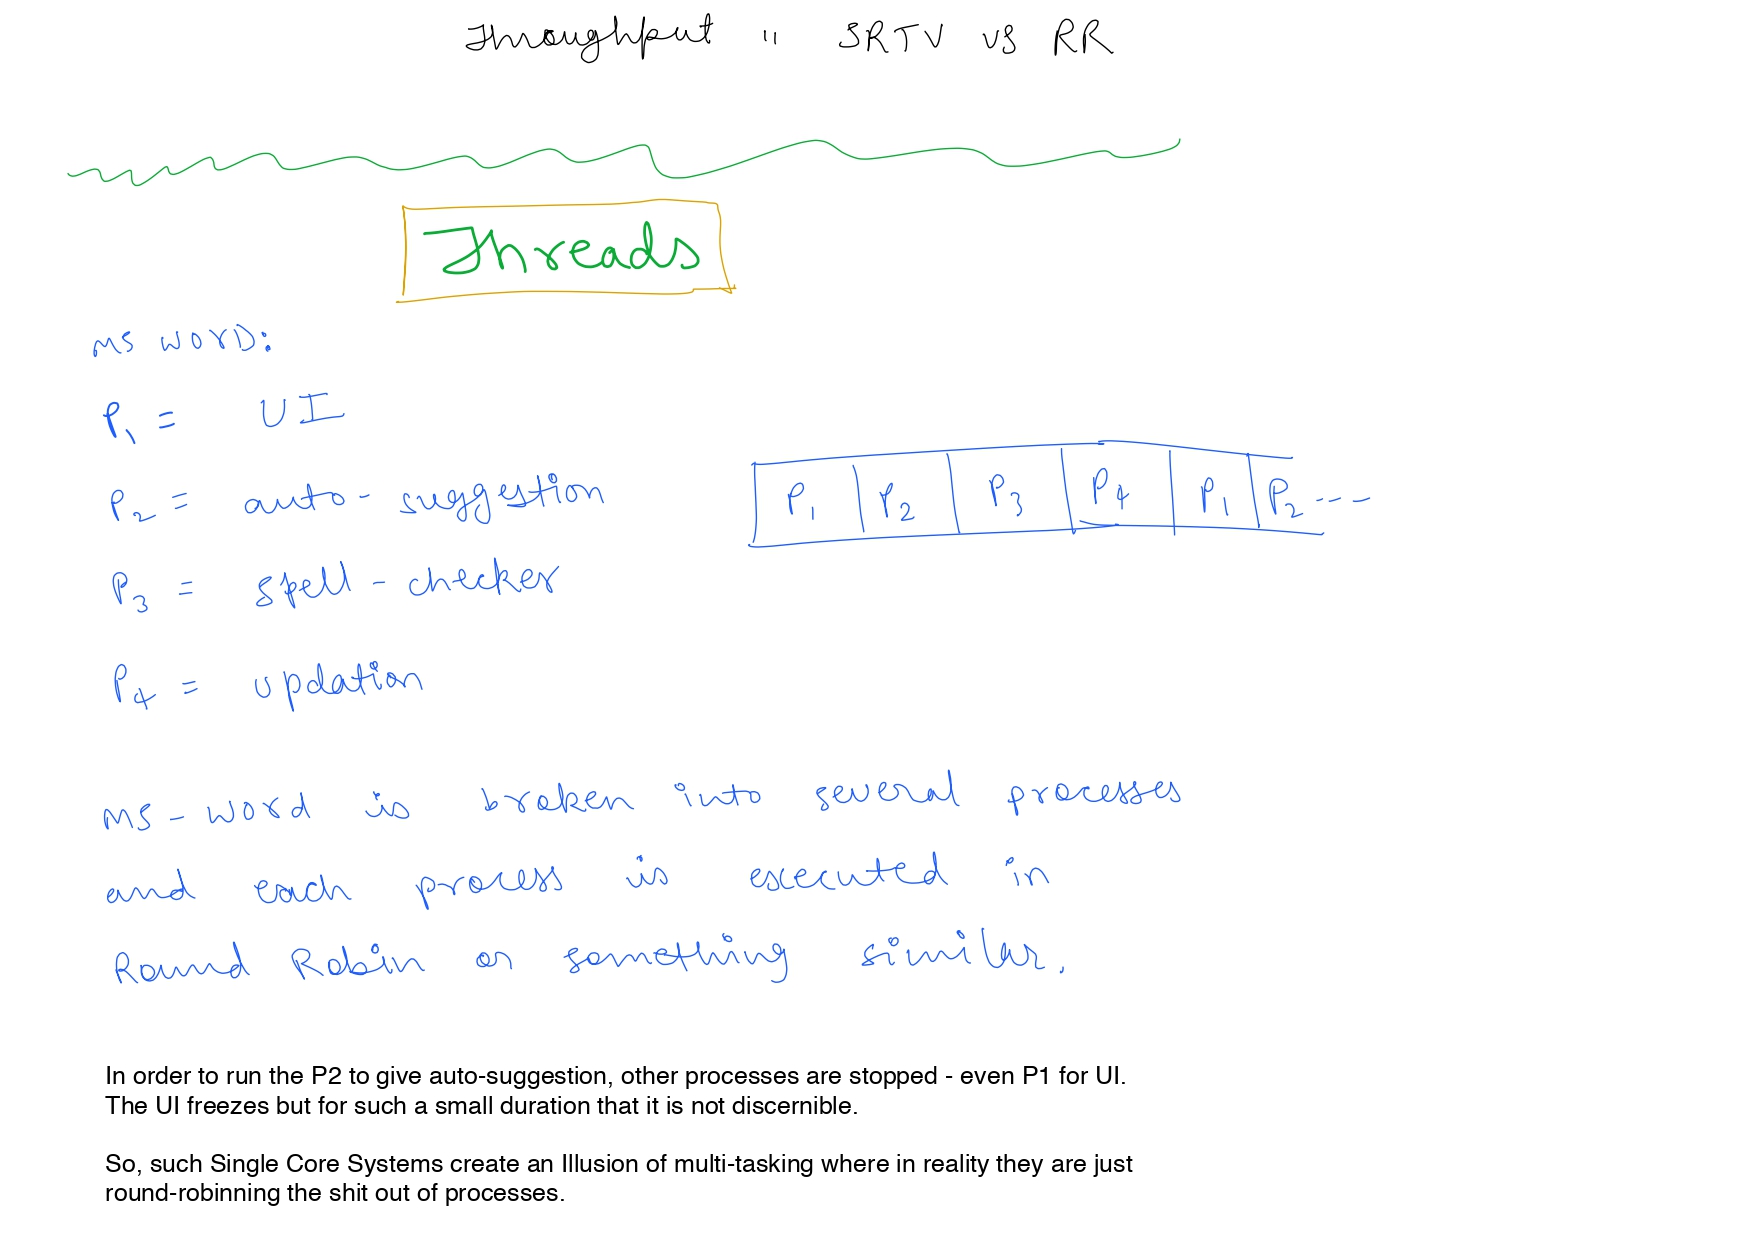 Throughput " SRTV vs RR
Threads
MS WORD:
P1 = UI
P2 = auto-suggestion
P1 P2 P3 P4 P1 P2 ---
P3 = spell-checker
P4 = updation
MS-Word is broken into several processes
and each process is executed in
Round Robin or something similar.
In order to run the P2 to give auto-suggestion, other processes are stopped - even P1 for UI.
The UI freezes but for such a small duration that it is not discernible.
So, such Single Core Systems create an Illusion of multi-tasking where in reality they are just
round-robinning the shit out of processes.